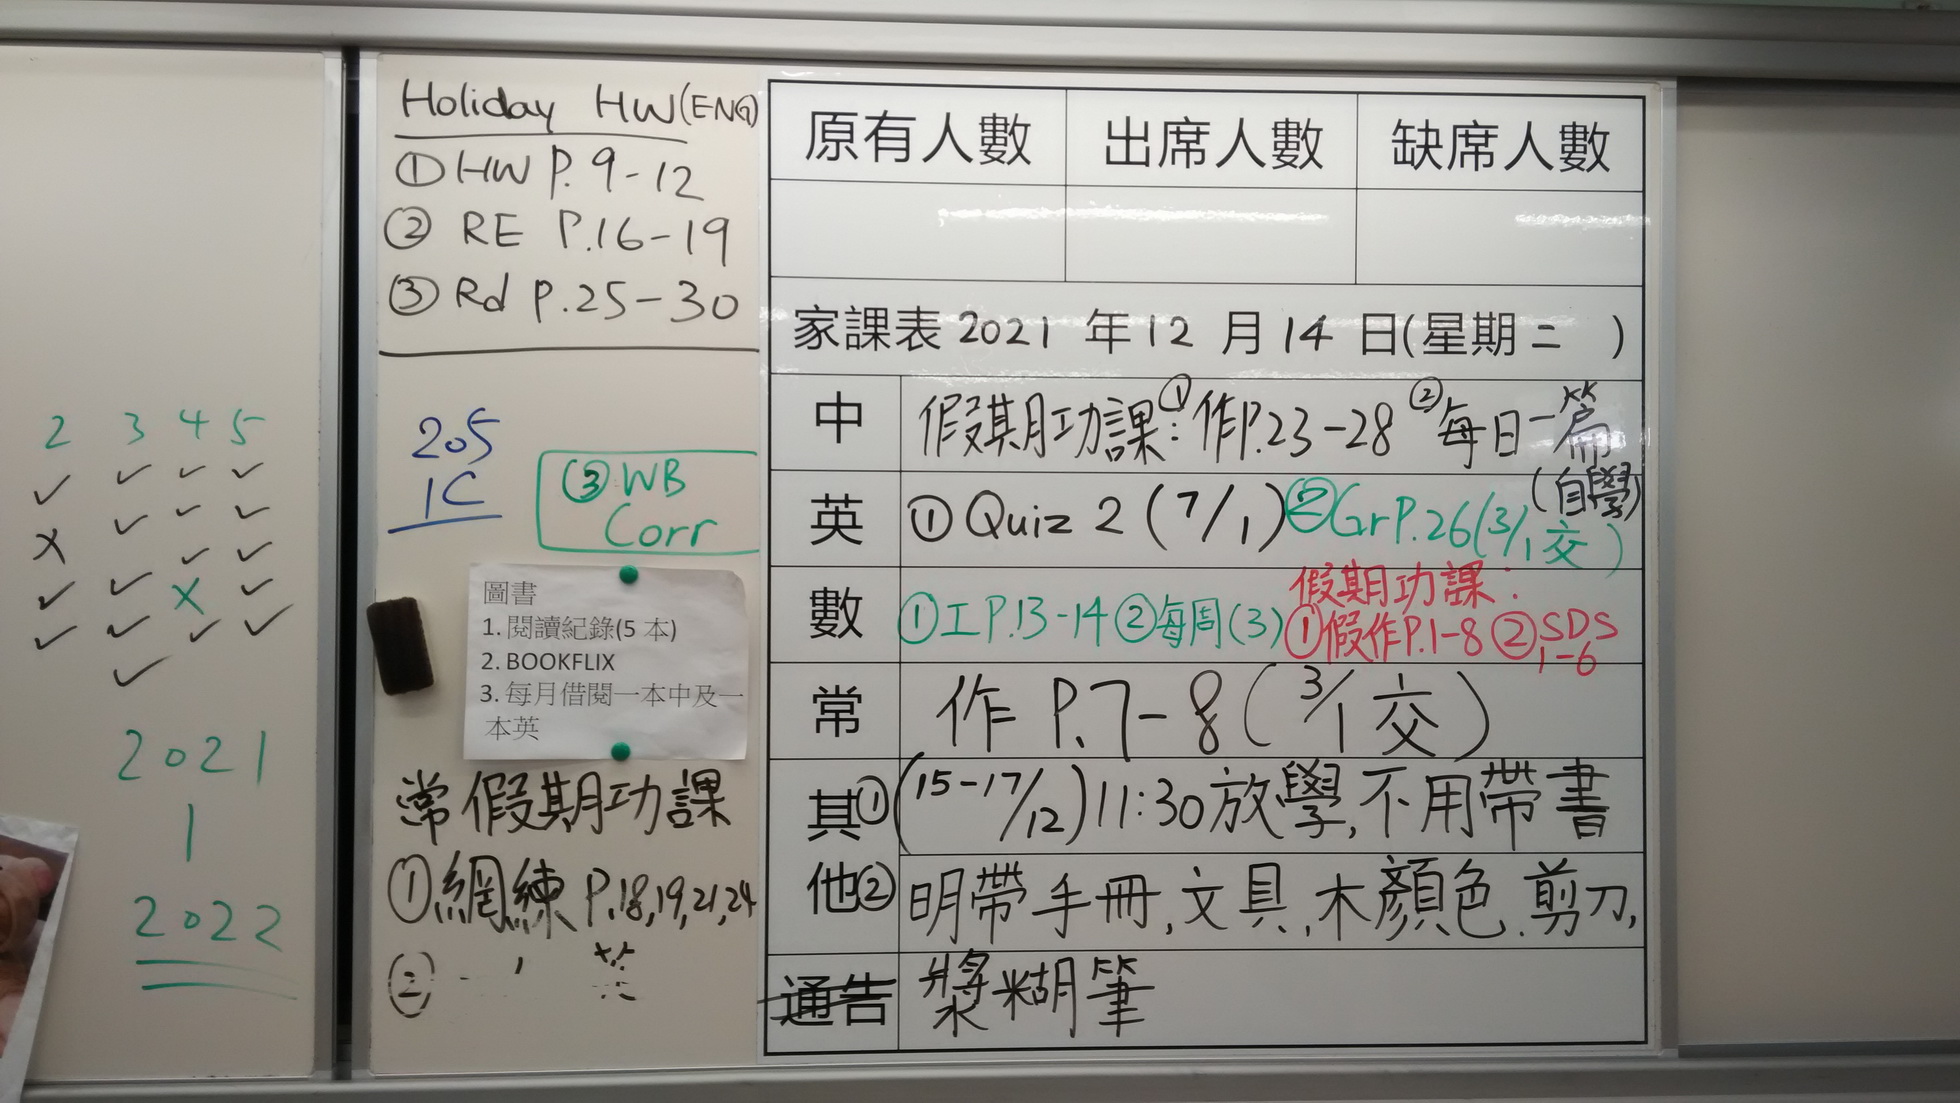 2 3 4 5
✓ ✓ ✓ ✓
X ✓ ✓ ✓
✓ ✓ ✓ ✓
✓ ✓ X ✓
✓ ✓ ✓
2021
1
2022
Holiday HW(ENG)
①HW P.9-12
② RE P.16-19
③ Rd P.25-30
205
1C
③WB
Corr
圖書
1. 閱讀紀錄(5 本)
2. BOOKFLIX
3. 每月借閱一本中及一
本英
常假期功課
①網練 P.18,19,21,24
②
原有人數 出席人數 缺席人數
家課表 2021 年 12 月 14 日(星期二 )
中 假期功課:①作P.23-28 ②每日一篇
(自學)
英 ①Quiz 2 (7/1) ②Gr P.26(3/1交)
假期功課:
數 ①工P.13-14 ②每周(3) ①假作P.1-8 ②SDS
1-6
常 作 P.7-8 (3/1交)
其① (15-17/12) 11:30放學,不用帶書
他② 明帶手冊,文具,木顏色,剪刀,
通告 漿糊筆